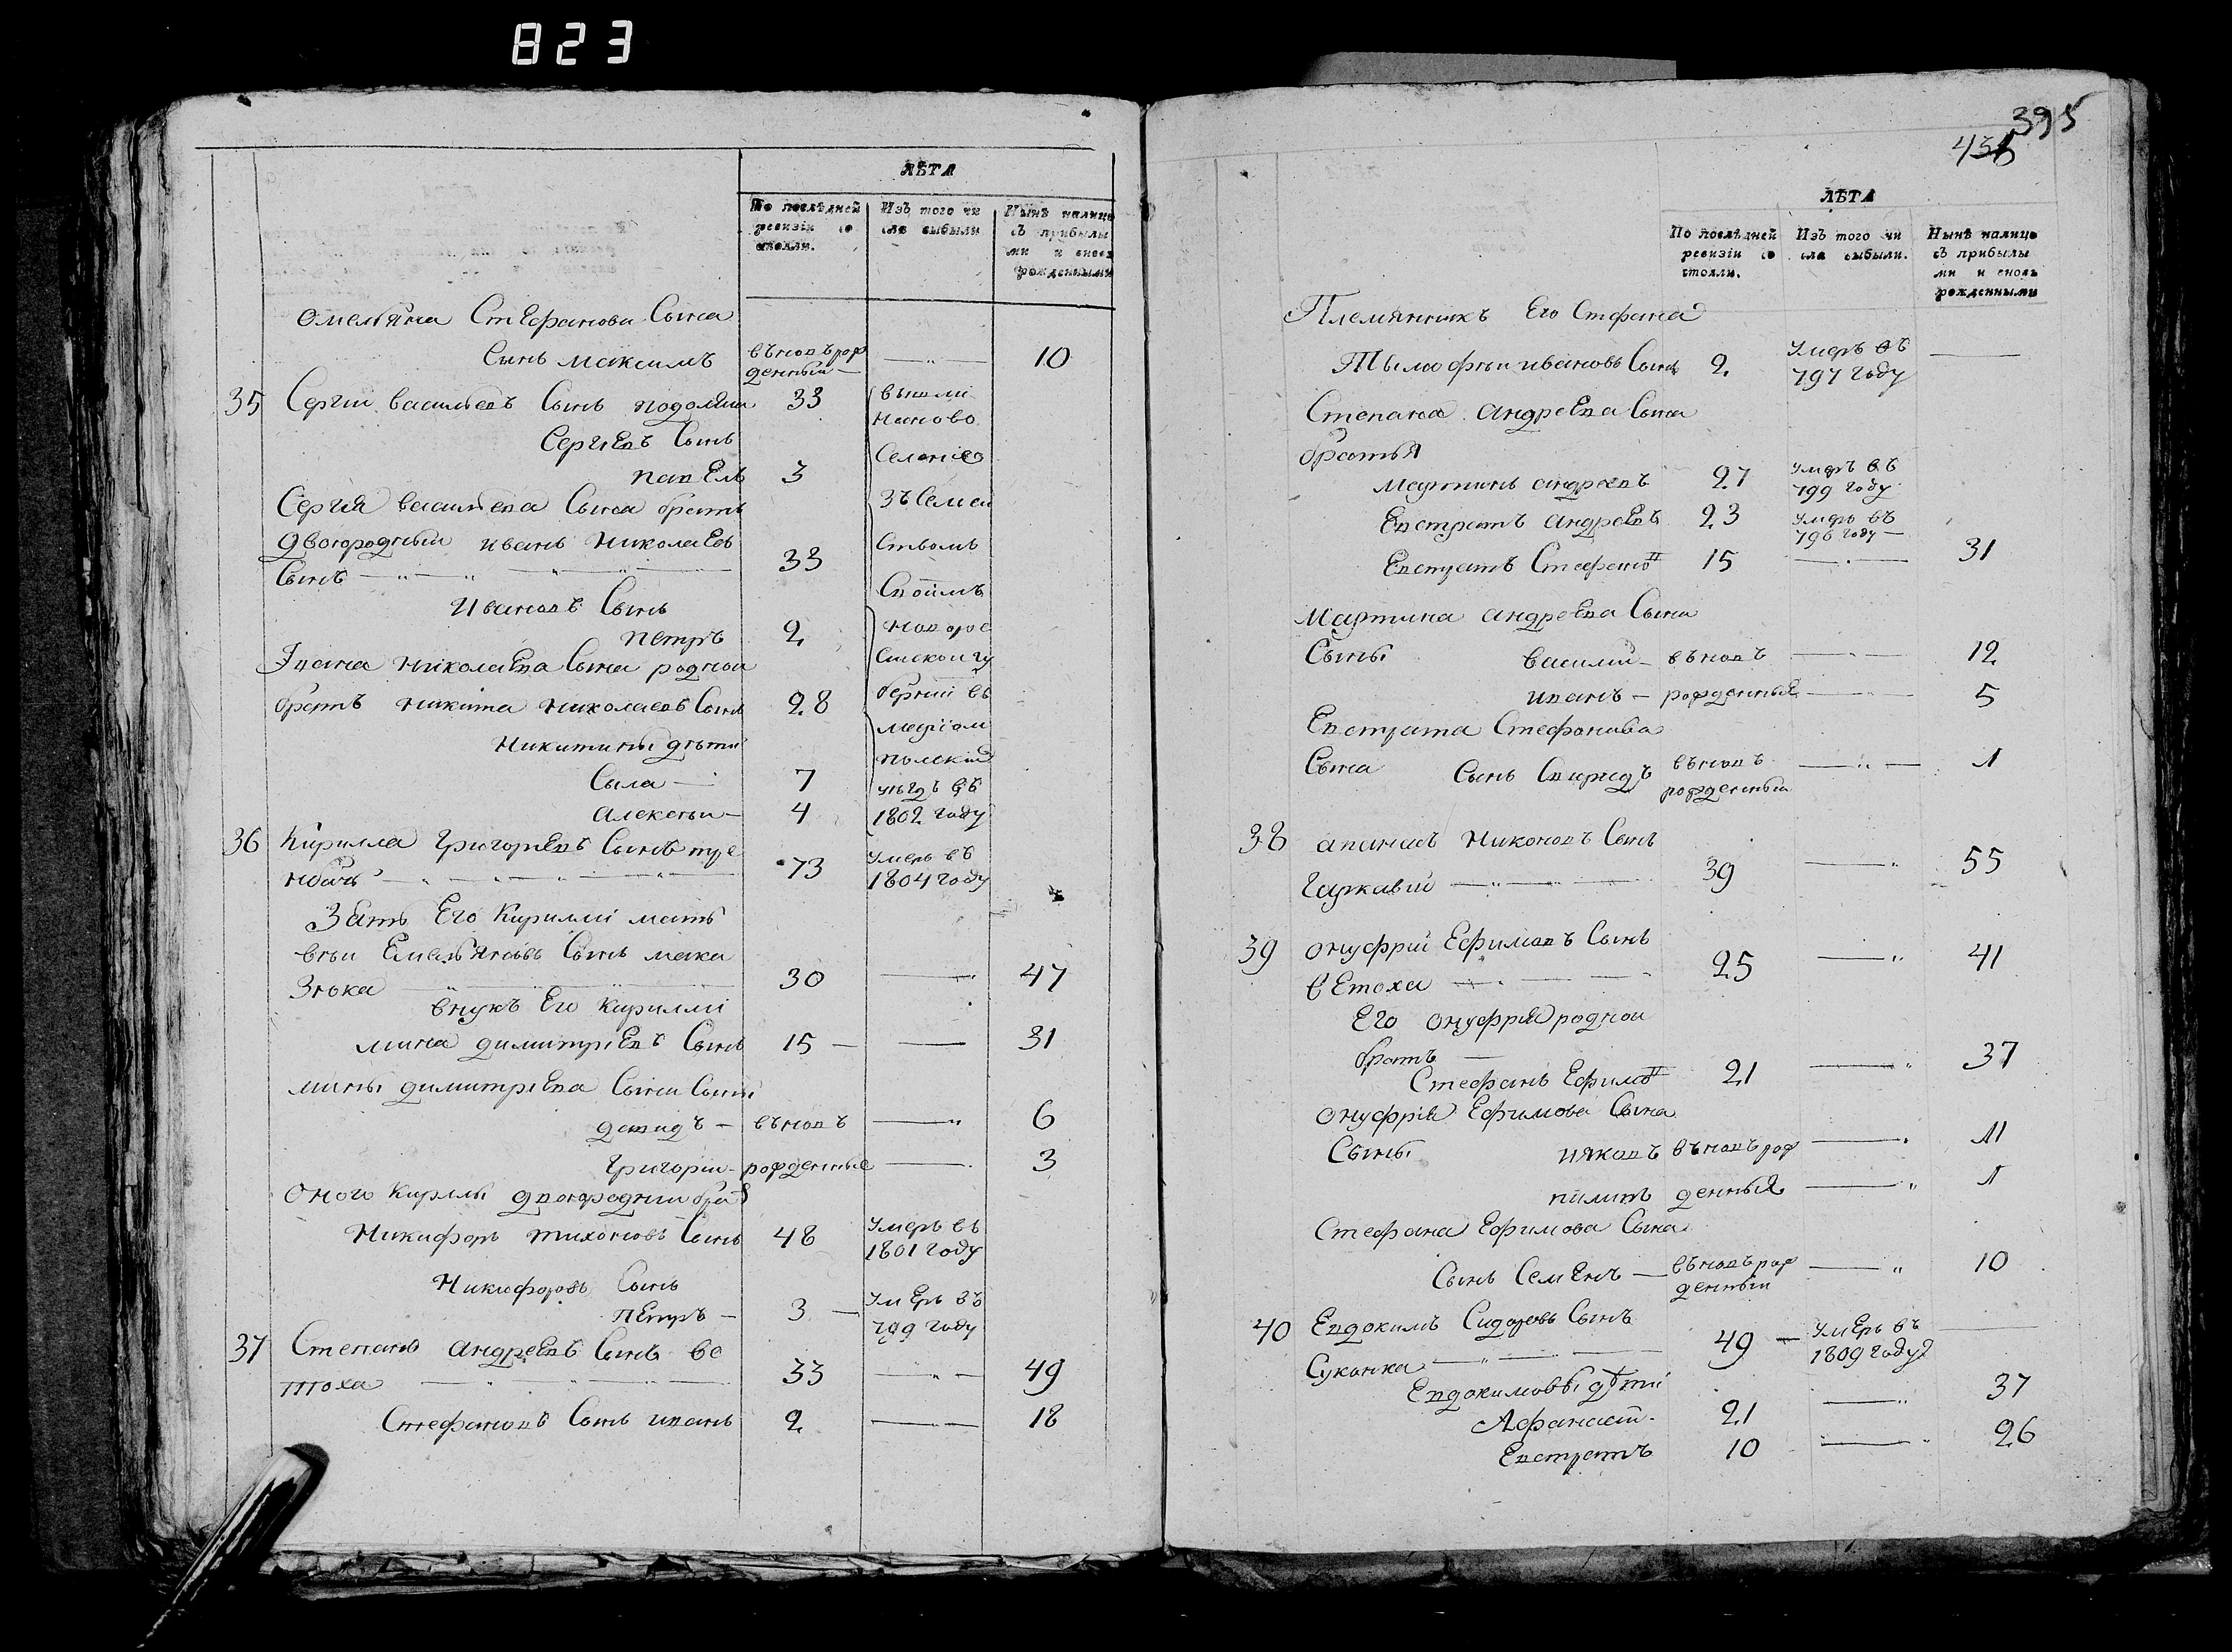 823
ЛѢТА
По послѣдней ревизіи со стояли.
Изъ того чи сла выбыли
Нынѣ налицо съ прибылы ми и вновь рожденными
Омельяна Стефанова Сына
Сынъ максимъ вѣновь рож денный — 10
35 Сергіи васильевъ Сынъ подоляка 33 вышли
наново
Сергіевъ Сынъ
Селеніе
павелъ 3
Сергія васильева Сына братъ зъ Семей
Двоюродный иванъ Николаевъ Ствомъ
Сынъ 33
Своимъ
Ивановъ Сынъ
петръ 2 Новорос
Ивана Николаева Сына родной Сискои гу
братъ Никита Николаевъ Сынъ 28 берніи въ
маріом
Никитины дѣти
польскій
Сила — 7 уѣздъ въ
алексѣи — 4 1802 году
36 Кирилла Григорьевъ Сынъ
73 умеръ въ 1804 году
Зять Его Кириллы мать
вѣи Емельяновъ Сынъ мака
Зюка 30 — 47
внукъ Его Кириллы
мина димитріевъ Сынъ 15 — 31
мины димитріева Сына Сыны
давидъ — вѣновь — 6
Григоріи — рожденные — 3
Оного Кирилы двоюродныи братъ
Никифоръ тихоновъ Сынъ 48 умеръ въ 1801 году
Никифоровъ Сынъ
пЕтръ — 3 — умЕръ въ 799 году
37 Степанъ андреевъ Сынъ ве
тоха 33 — 49
Стефановъ Сынъ иванъ 2 — 18
395
ЛѢТА
По послѣдней ревизіи со стояли.
Изъ того чи сла выбыли.
Нынѣ налицо съ прибылы ми и вновь рожденными
Племянникъ Его Стефана
Тымофѣи ивановъ Сынъ 2 Умеръ въ 797 году —
Степана андреева Сына
братья
мартинъ андреевъ 27 умеръ въ 799 году
Евстратъ андреевъ 23 умеръ въ 796 году —
Евстратъ Стефанъ 15 — 31
мартина андреева Сына
Сыны василіи — вѣновь — 12
иванъ — рожденные — 5
Евстрата Стефанова
Сына Сынъ Свиридъ вѣновь рожденный — 1
38 апанасъ Никоновъ Сынъ
Гаркавій 39 — 55
39 онуфрій Ефимовъ Сынъ
вЕтоха 25 — 41
Его онуфрія родной
братъ —
Стефанъ Ефимъ 21 — 37
онуфрія Ефимова Сына
Сыны ияковъ вѣновь рож — 11
пилипъ денныя — 1
Стефана Ефимова Сына
Сынъ СемЕнъ — вѣновь рож денный — 10
40 Евдокимъ Сидоровъ Сынъ
Суконка 49 — умЕръ въ 1809 году —
Евдокимовы дѣти
Афанасій — 21 — 37
Евстратъ 10 — 26